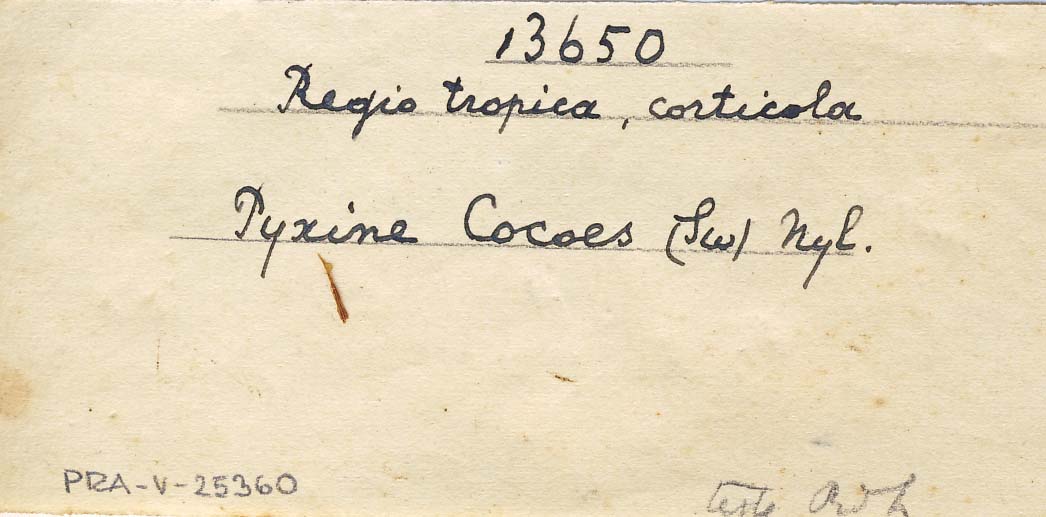 13650
Regio tropica, corticola
Pyxine Cocoes (Sw) Nyl.
PRA-V-25360
teste